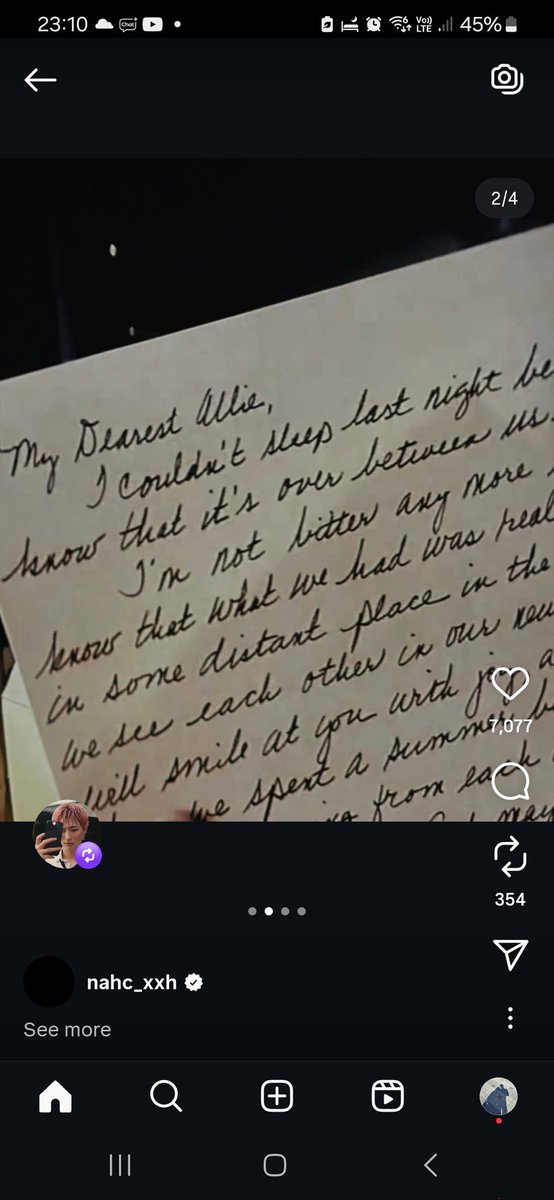 23:10
Chat
6
Vo))
LTE
45%
2/4
My Dearest Allie,
I couldn't sleep last night be
know that it's over between us.
I'm not bitter any more
know that what we had was real
in some distant place in the
we see each other in our new
we'll smile at you with joy a
we spent a summer b
ing from each
may
7,077
354
nahc_xxh
See more